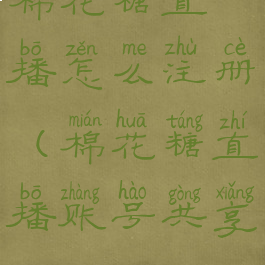 棉花糖直
bō zěn me zhù cè
播怎么注册
mián huā táng zhí
（棉花糖直
bō zhàng hào gòng xiǎng
播账号共享